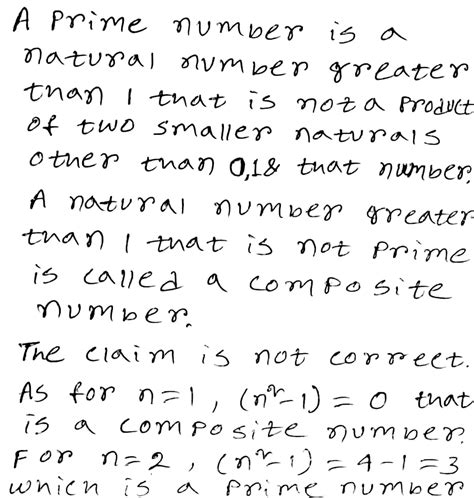 A Prime number is a
natural number greater
than 1 that is not a Product
of two smaller naturals
other than 0,1& that number.
A natural number greater
than 1 that is not Prime
is called a composite
number.
The claim is not correct.
As for n=1, (n²-1) = 0 that
is a composite number.
For n=2, (n²-1) = 4-1=3
which is a Prime number